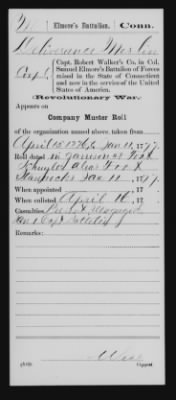 M | Elmore's Battalion, | Conn.
Deliverance
Corp'l, Capt. Robert Walker's Co. in Col. Samuel Elmore's Battalion of Forces raised in the State of Connecticut and now in the service of the United States of America.
Revolutionary War.
Appears on
Company Muster Roll
of the organization named above, taken from
April 15 1776, to Jan 11, 1777.
Roll dated in Garrison at Fort
Schuyler alias Fort
Stanwix Jan 11, 1777.
When appointed , 17 .
When enlisted April 16, 17 .
Casualties
Remarks: